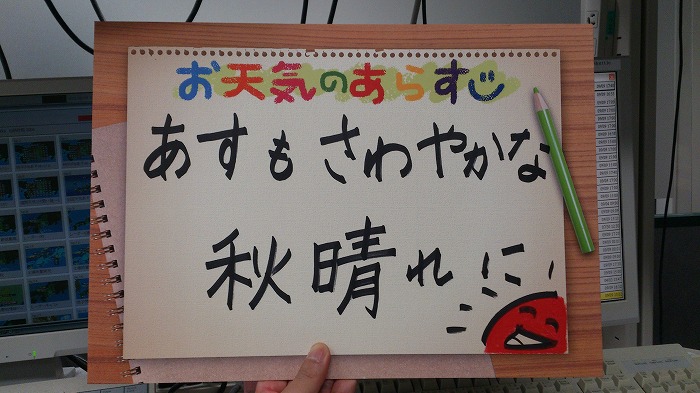 お天気のあらすじ
あすもさわやかな
秋晴れに